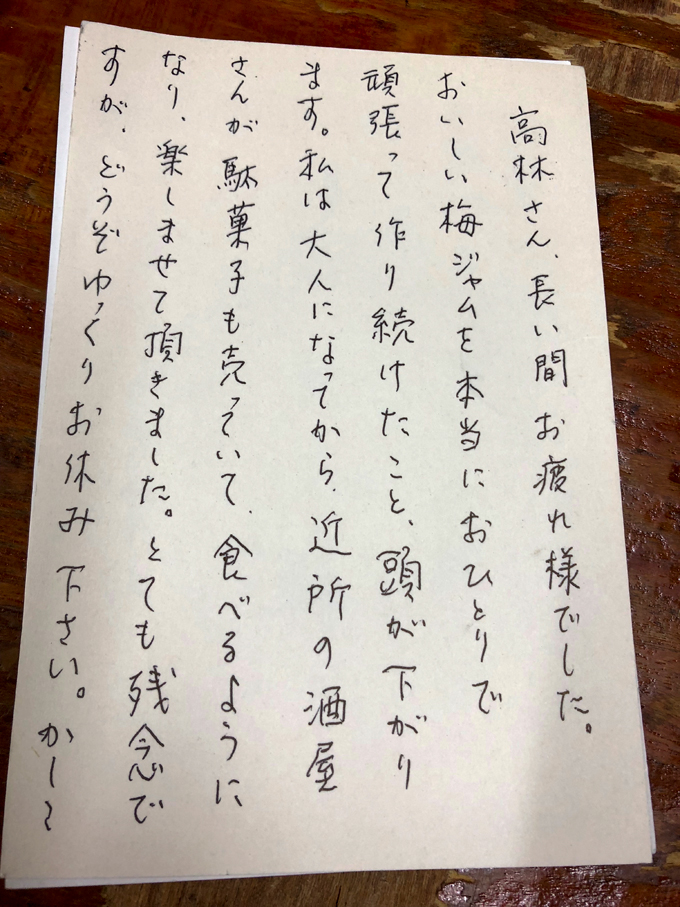 高林さん、長い間お疲れ様でした。
おいしい梅ジャムを本当におひとりで
頑張って作り続けたこと、頭が下がり
ます。私は大人になってから、近所の酒屋
さんが駄菓子も売っていて、食べるように
なり、楽しませて頂きました。とても残念で
すが、どうぞゆっくりお休み下さい。かしこ